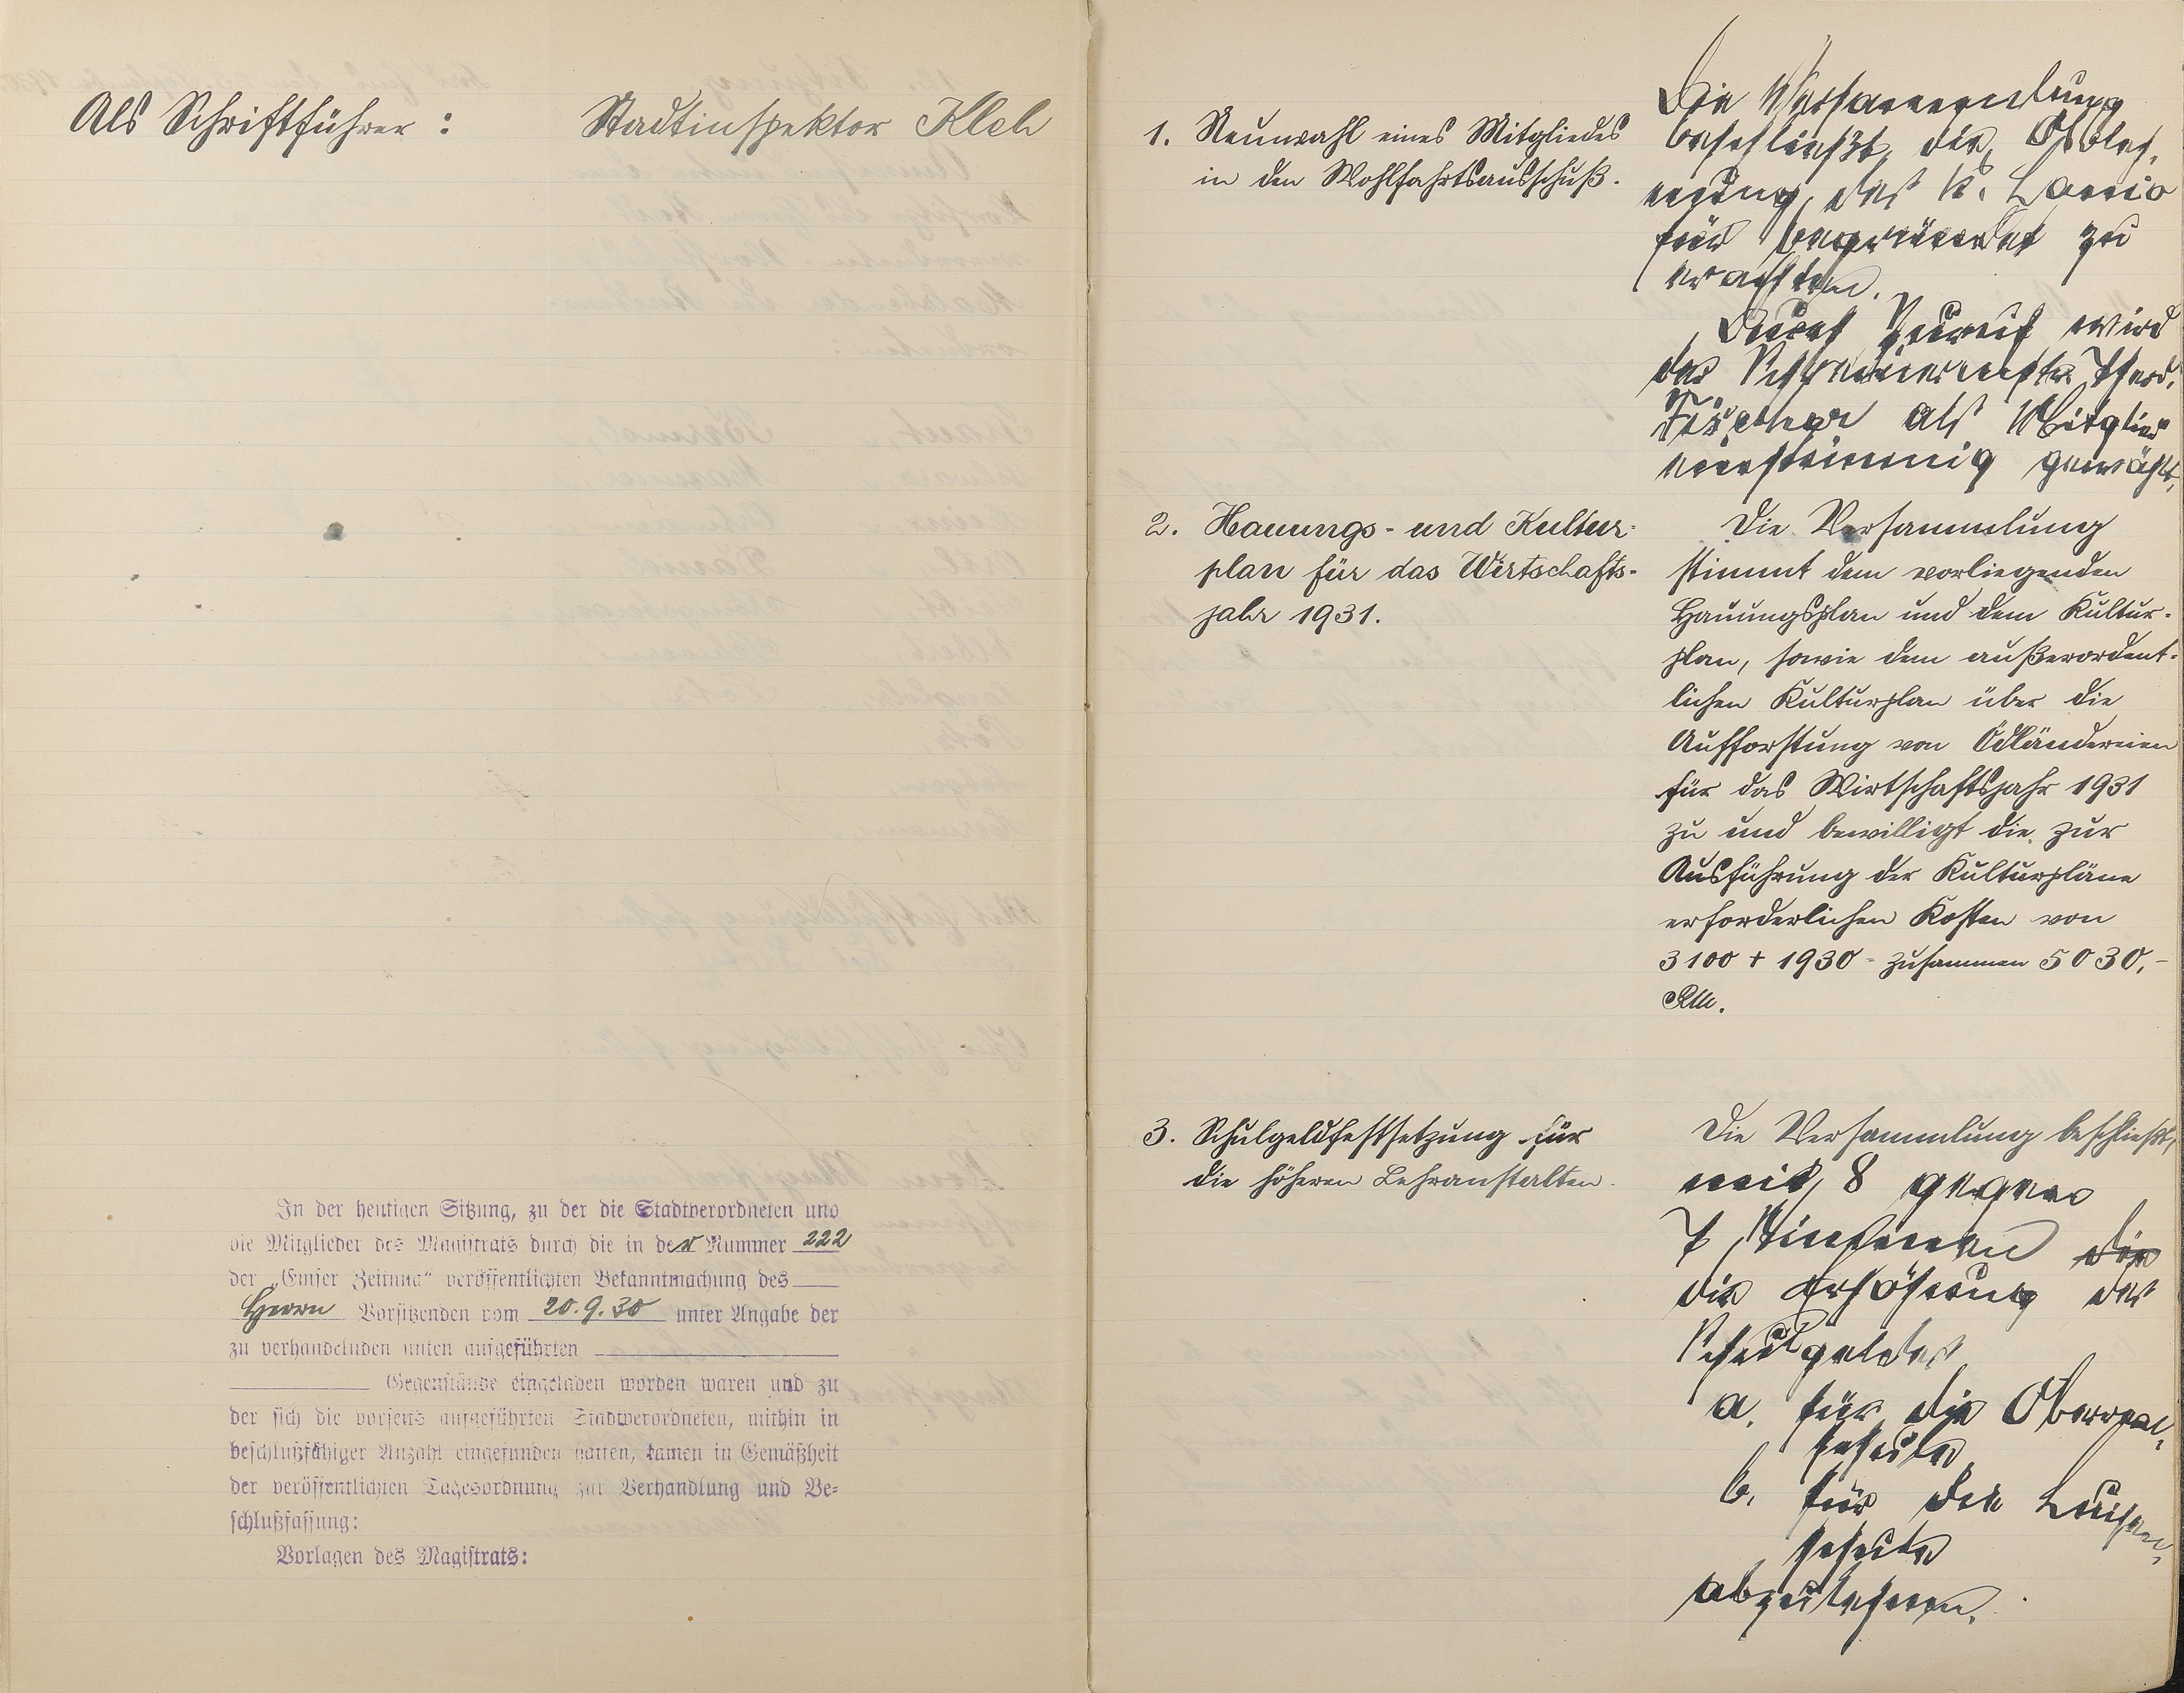 Als Schriftführer :
Stadtinspektor Kleh
In der heutigen Sitzung, zu der die Stadtverordneten und
die Mitglieder des Magistrats durch die in der Nummer 222
der „Emser Zeitung“ veröffentlichten Bekanntmachung des
Herrn Vorsitzenden vom 20.9.30 unter Angabe der
zu verhandelnden unten aufgeführten
Gegenstände eingeladen worden waren und zu
der sich die vorseits aufgeführten Stadtverordneten, mithin in
beschlußfähiger Anzahl eingefunden hatten, kamen in Gemäßheit
der veröffentlichten Tagesordnung zur Verhandlung und Be-
schlußfassung:
Vorlagen des Magistrats:
1. Neuwahl eines Mitgliedes
in den Wohlfahrtsausschuß.
Die Versammlung
beschließt, die Ableh-
nung des K. Lanio
für begründet zu
erachten.
Durch Zuruf wird
der Schreinermstr. Ferd.
als Mitglied
einstimmig gewählt.
2. Hauungs- und Kultur-
plan für das Wirtschafts-
jahr 1931.
Die Versammlung
stimmt dem vorliegenden
Hauungsplan und dem Kultur-
plan, sowie dem außerordent-
lichen Kulturplan über die
Aufforstung von Ödländereien
für das Wirtschaftsjahr 1931
zu und bewilligt die zur
Ausführung der Kulturpläne
erforderlichen Kosten von
3100 + 1930 - zusammen 5030,-
RM.
3. Schulgeldfestsetzung für
die höheren Lehranstalten.
Die Versammlung beschließt,
mit 8 gegen
7 Stimmen die
die Erhöhung des
Schulgeldes
a. für die Oberreal-
schule
b. für die Luisen-
schule
abzulehnen.